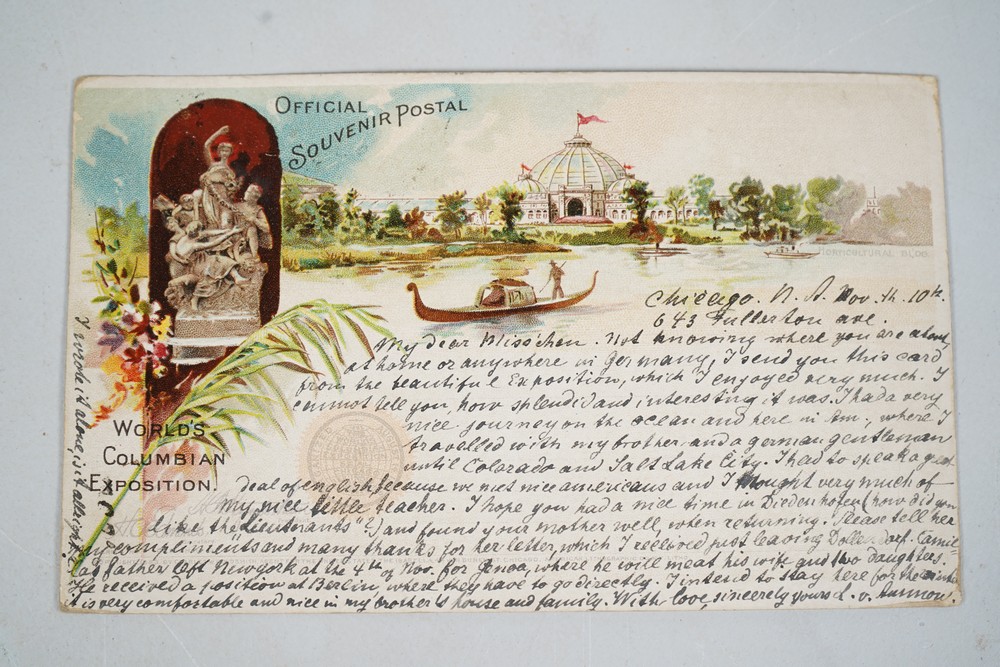 OFFICIAL
SOUVENIR POSTAL
HORTICULTURAL BLDG.
WORLD'S
COLUMBIAN
EXPOSITION.
Chicago. N. A. Nov. th. 10th.
643 Fullerton ave.
My dear Miss'chen. Not knowing where you are about,
at home or anywhere in Germany, I send you this card
from the beautiful Exposition, which I enjoyed very much. I
cannot tell you, how splendid and interesting it was. I had a very
nice journey on the ocean and here in Am., where I
travelled with my brother and a german gentleman
until Colorado and Salt Lake City. I had to speak a great
deal of english, because we met nice americans and I thought very much of
my nice little teacher. I hope you had a nice time in (how did you
like the "Lieutnants"?) and found your mother well when returning. Please tell her
my compliments and many thanks for her letter, which I received just leaving
father left Newyork at the 4th of Nov. for Genoa, where he will meat his wife and two daughters.
He received a position at Berlin, where they have to go directly. I intend to stay here for the
it is very comfortable and nice in my brother's house and family. With love, sincerely yours L. v.
I wrote it alone, is it allright?